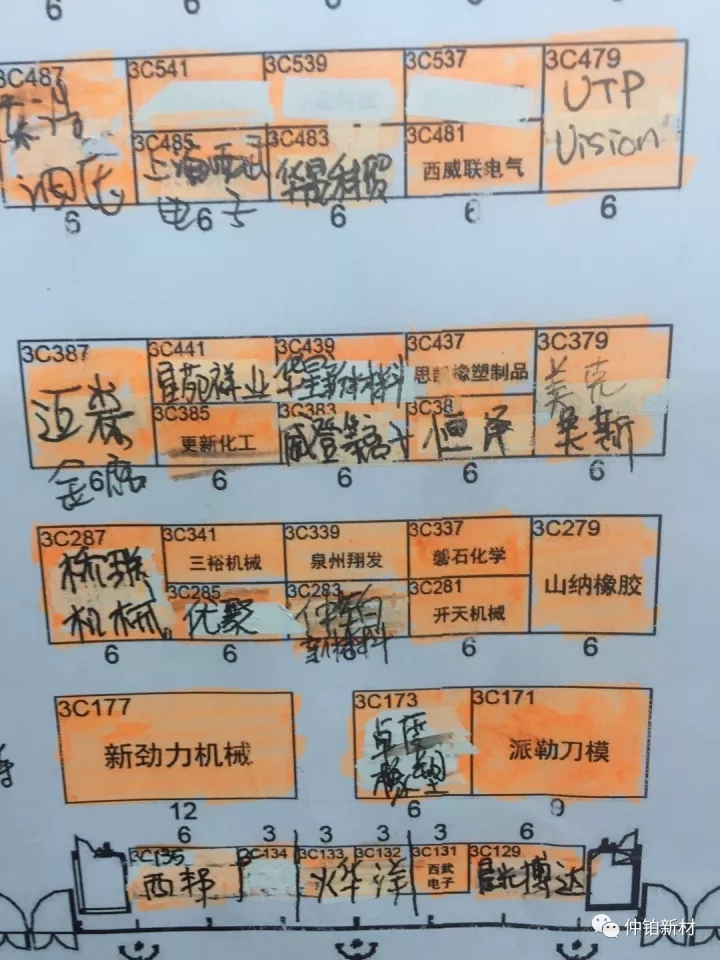 6 6 6 6
3C487 3C541 3C539 3C537 3C479
UTP
Vision
3C485 3C483 3C481
上海西
电子
华晟科贸
西威联电气
6 6 6 6 6
3C387 3C441 3C439 3C437 3C379
星苑祥业
华星新材料
橡塑制品
美克
昊斯
3C385 3C383 3C38
迈森
更新化工
威登
恒泽
6 6 6 6 6
3C287 3C341 3C339 3C337 3C279
三裕机械
泉州翔发
磐石化学
山纳橡胶
机械
3C285 3C283 3C281
优聚
仲铂
新材料
开天机械
6 6 6 6
3C177 3C173 3C171
新劲力机械
橡塑
派勒刀模
12 6 9
6 3 3 3 3 6
3C135 3C134 3C133 3C132 3C131 3C129
西邦
火华洋
西武
电子
博达
仲铂新材